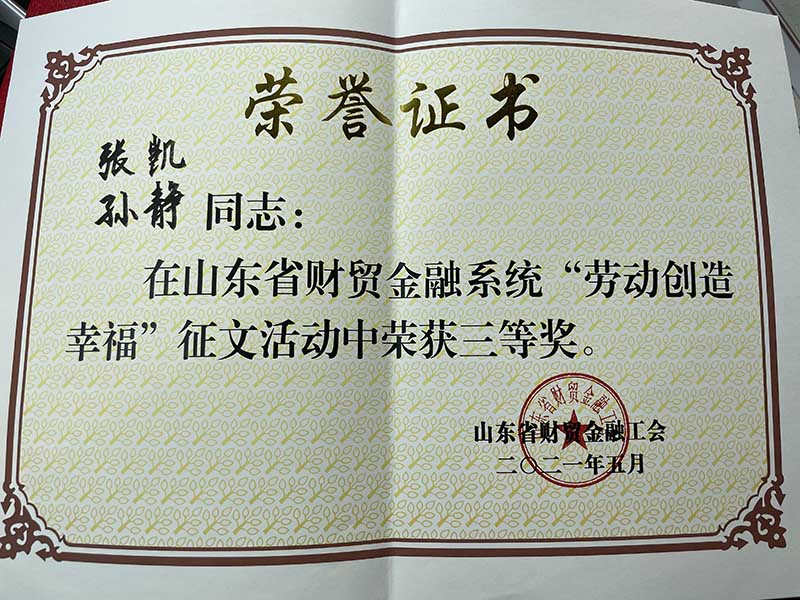 荣誉证书
张凯
孙静 同志：
在山东省财贸金融系统“劳动创造
幸福”征文活动中荣获三等奖。
山东省财贸金融工会
山东省财贸金融工会
二〇二一年五月